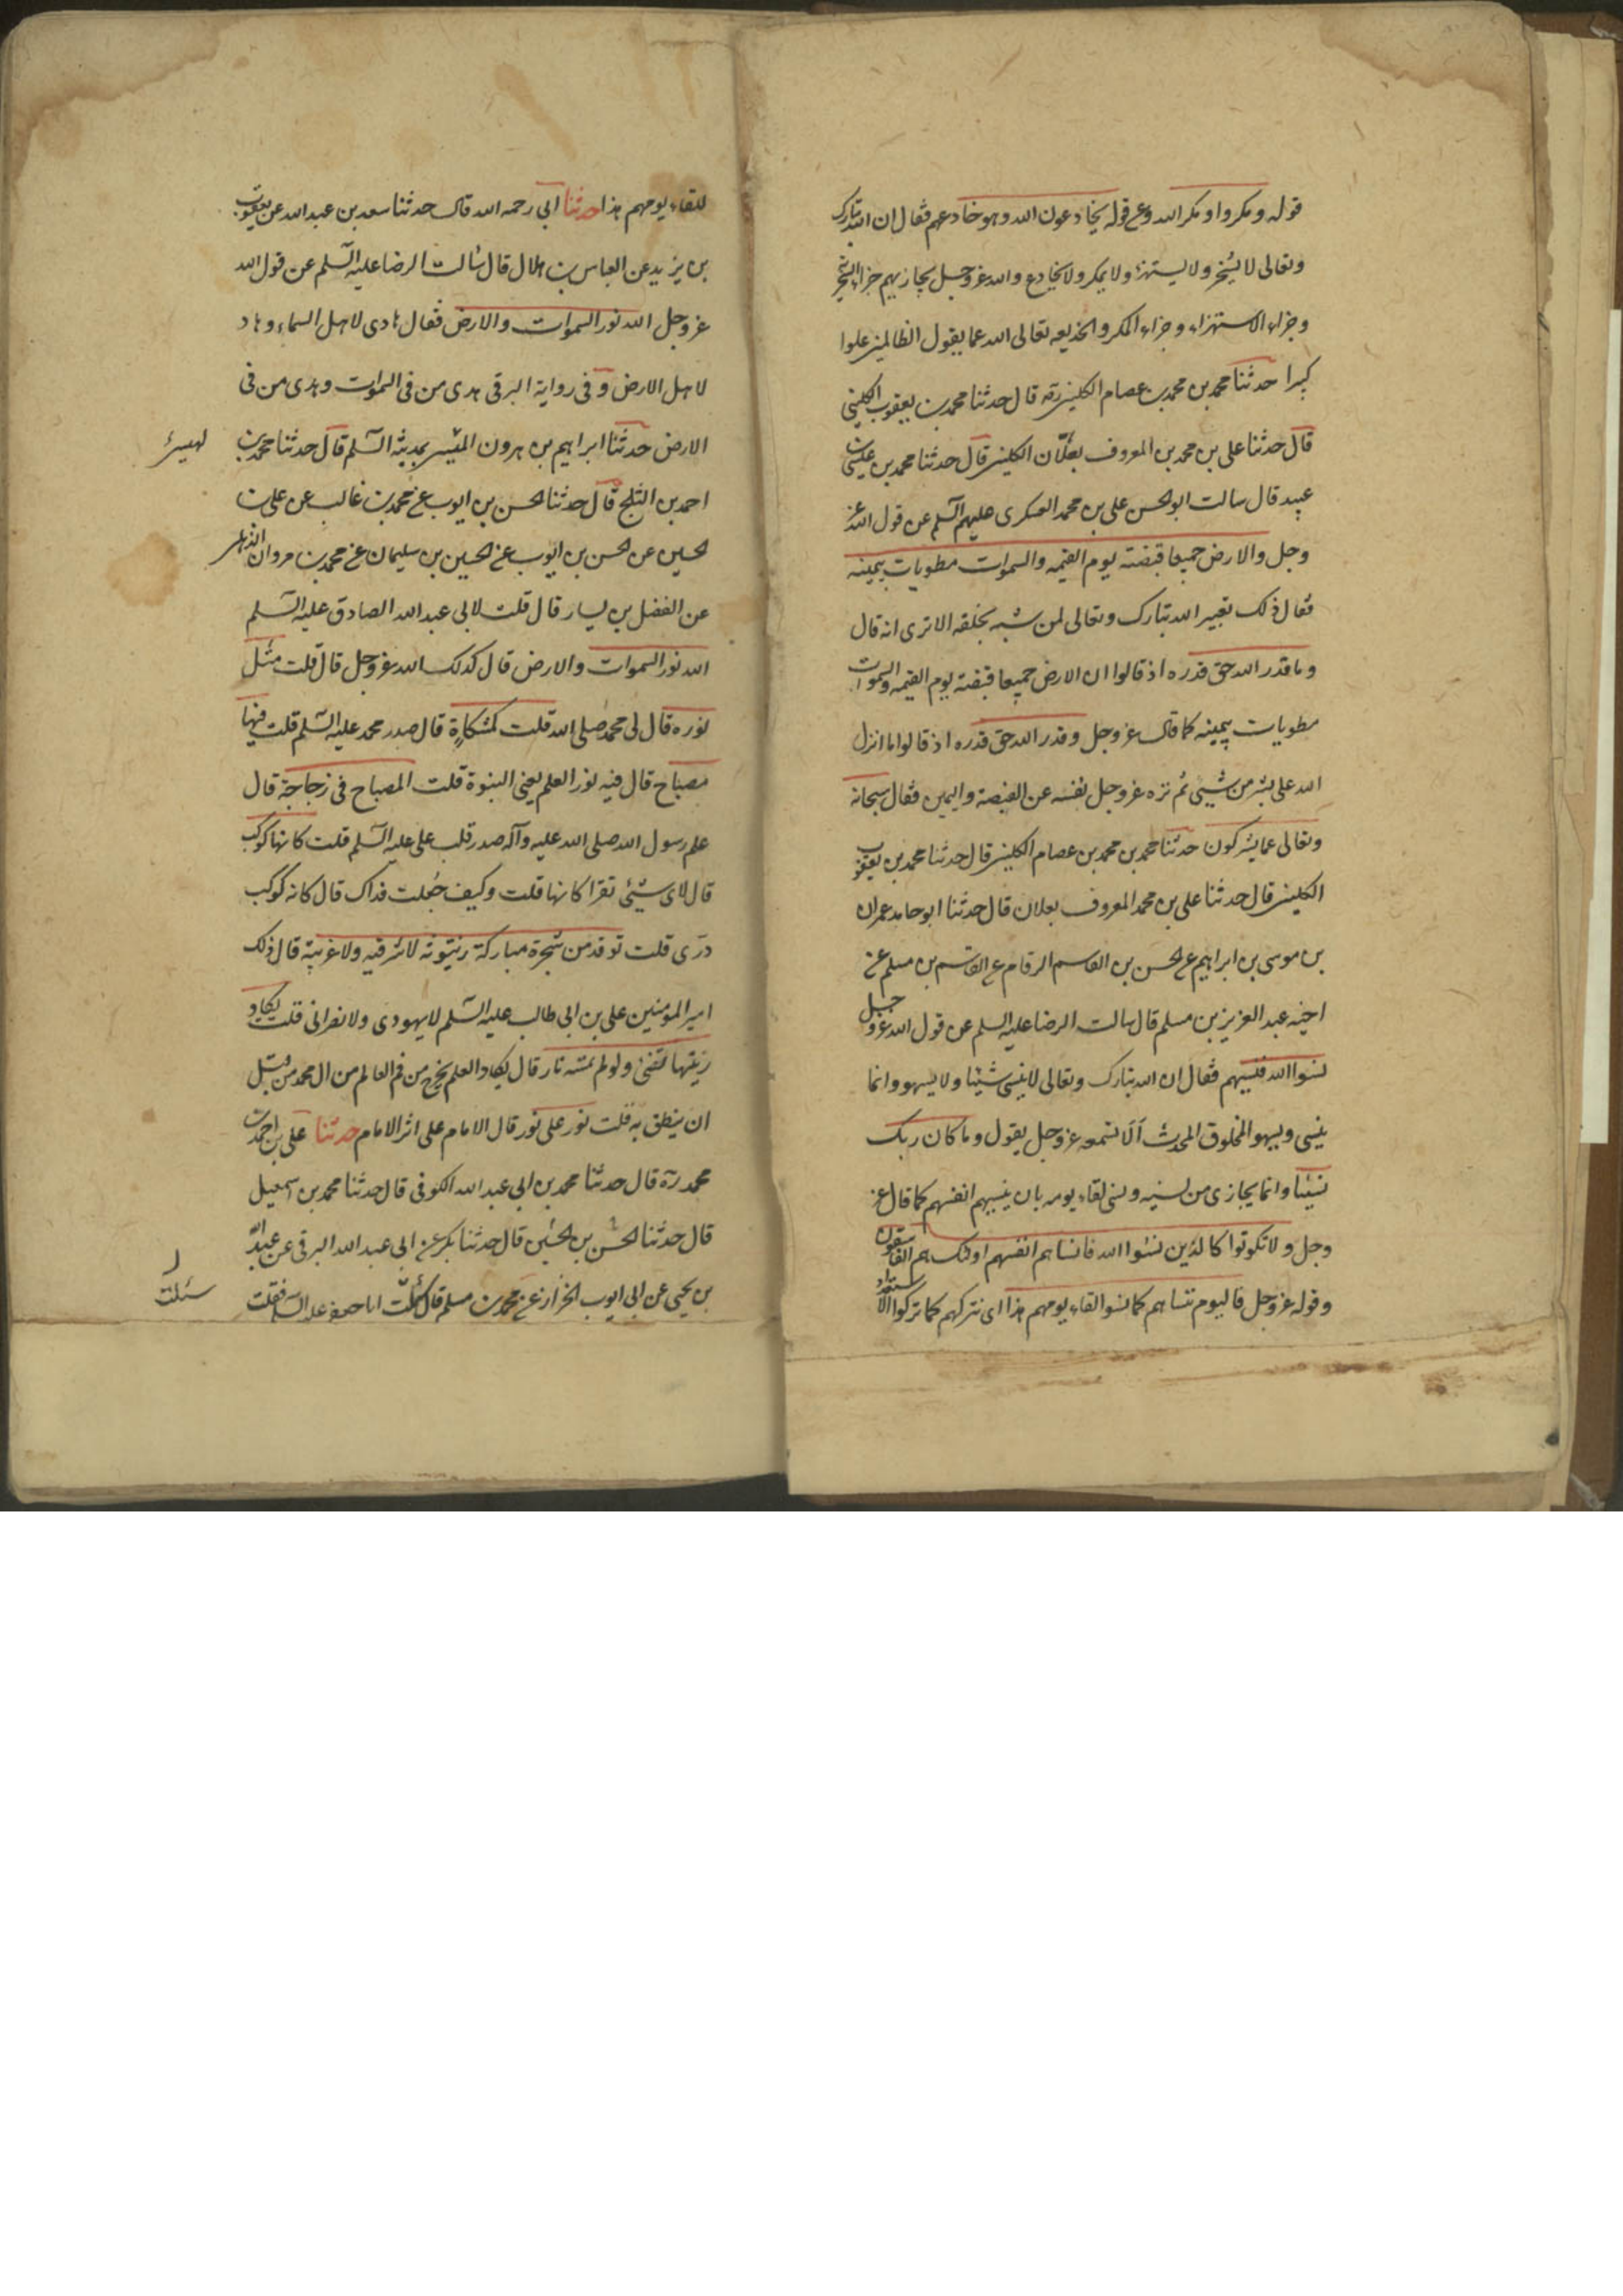 قوله ومكروا ومكر الله وعن قوله يخادعون الله وهو خادعهم فقال ان الله تبارك
وتعالى لا يسخر ولا يستهزء ولا يمكر ولا يخادع والله عز وجل يجازيهم جزاء السخر
وجزاء الاستهزاء وجزاء المكر والخديعه تعالى الله عما يقول الظالمين علوا
كبيرا حدثنا محمد بن محمد بن عصام الكليني ره قال حدثنا محمد بن يعقوب الكليني
قال حدثنا علي بن محمد بن المعروف بعلّان الكليني قال حدثنا محمد بن عيسى بن
عبيد قال سالت ابو الحسن علي بن محمد العسكري عليهم السلم عن قول الله عز
وجل والارض جميعا قبضته يوم القيمه والسموات مطويات بيمينه
فقال ذلك تعيير الله تبارك وتعالى لمن شبه بخلقه الا ترى انه قال
وما قدر الله حق قدره اذ قالوا ان الارض جميعا قبضته يوم القيمه والسموات
مطويات بيمينه كما قال عز وجل وقدر الله حق قدره اذ قالوا ما انزل
الله على بشر من شيئ ثم نزه عز وجل نفسه عن القبضة واليمين فقال سبحانه
وتعالى عما يشركون حدثنا محمد بن محمد بن عصام الكليني قال حدثنا محمد بن يعقوب
الكليني قال حدثنا علي بن محمد المعروف بعلان قال حدثنا ابو حامد عمران
بن موسى بن ابراهيم عن الحسن بن القاسم الرقام عن القاسم بن مسلم عن
اخيه عبد العزيز بن مسلم قال سالت الرضا عليه السلم عن قول الله عز وجل
نسوا الله فنسيهم فقال ان الله تبارك وتعالى لا ينسى شيئا ولا يسهو وانما
ينسى ويسهو المخلوق المحدث ألا تسمعه عز وجل يقول وما كان ربك
نسيّا وانما يجازى من نسيه ونسى لقاء يومه بان ينسيهم انفسهم كما قال عز
وجل ولا تكونوا كالذين نسوا الله فانساهم انفسهم اولئك هم الفاسقون
وقوله عز وجل فاليوم ننساهم كما نسوا لقاء يومهم هذا اى نتركهم كما تركوا الاستعداد
للقاء يومهم هذا حدثنا ابى رحمه الله قال حدثنا سعد بن عبد الله عن يعقوب
بن يزيد عن العباس بن هلال قال سالت الرضا عليه السلم عن قول الله
عز وجل الله نور السموات والارض فقال هادى لاهل السماء وهاد
لاهل الارض وفى رواية البرقى هدى من فى السموات وهدى من فى
الارض حدثنا ابراهيم بن هرون الهيسى بمدينة السلم قال حدثنا محمد بن
احمد بن الثلج قال حدثنا الحسن بن ايوب عن محمد بن غالب عن علي بن
الحسين عن الحسن بن ايوب عن الحسين بن سليمان عن محمد بن مروان الذهلى
عن الفضل بن يسار قال قلت لابى عبد الله الصادق عليه السلم
الله نور السموات والارض قال كذلك الله عز وجل قال قلت مثل
نوره قال لى محمد صلى الله قلت كمشكاة قال صدر محمد عليه السلم قلت فيها
مصباح قال فيه نور العلم يعنى النبوة قلت المصباح فى زجاجة قال
علم رسول الله صلى الله عليه وآله صدر قلب على عليه السلم قلت كانها كوكب
قال لاى شيئ تقرا كانها قلت وكيف جعلت فداك قال كانه كوكب
درى قلت توقد من شجرة مباركة زيتونة لا شرقيه ولا غربية قال ذلك
امير المؤمنين علي بن ابى طالب عليه السلم لا يهودى ولا نصرانى قلت يكاد
زيتها يضئ ولو لم تمسه نار قال يكاد العلم يخرج من فم العالم من ال محمد من قبل
ان ينطق به قلت نور على نور قال الامام على اثر الامام حدثنا علي بن احمد بن
محمد ره قال حدثنا محمد بن ابى عبد الله الكوفى قال حدثنا محمد بن اسمعيل
قال حدثنا الحسن بن الحسين قال حدثنا بكر عن ابى عبد الله البرقى عن عبد الله
بن يحيى عن ابى ايوب الخزاز عن محمد بن مسلم قال سئلت ابا جعفر عليه السلم فقلت
سئلت